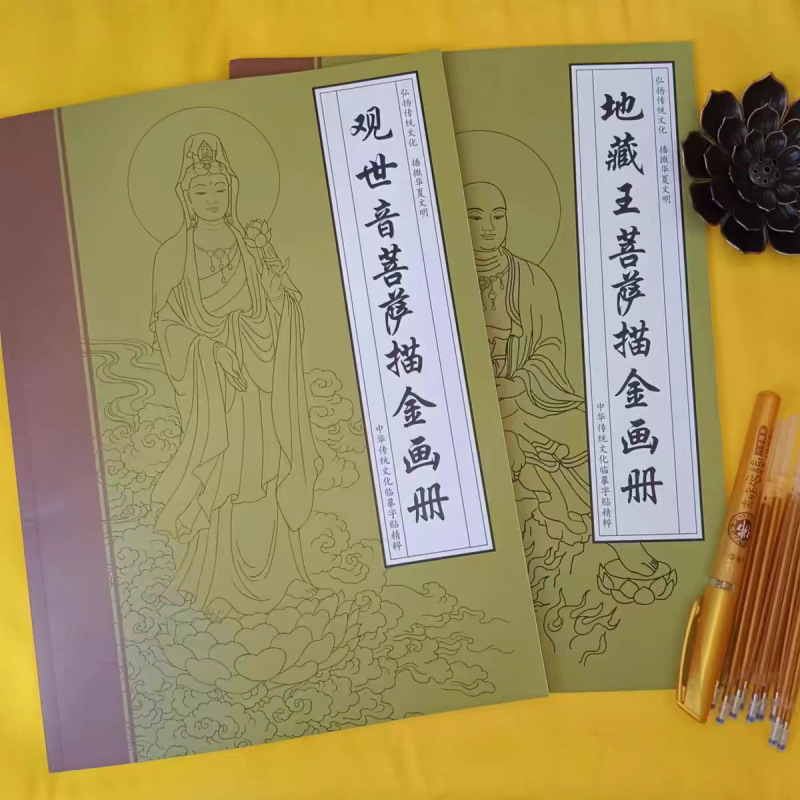 观世音菩萨描金画册
弘扬传统文化 播撒华夏文明
中华传统文化临摹字贴精粹
地藏王菩萨描金画册
弘扬传统文化 播撒华夏文明
中华传统文化临摹字贴精粹